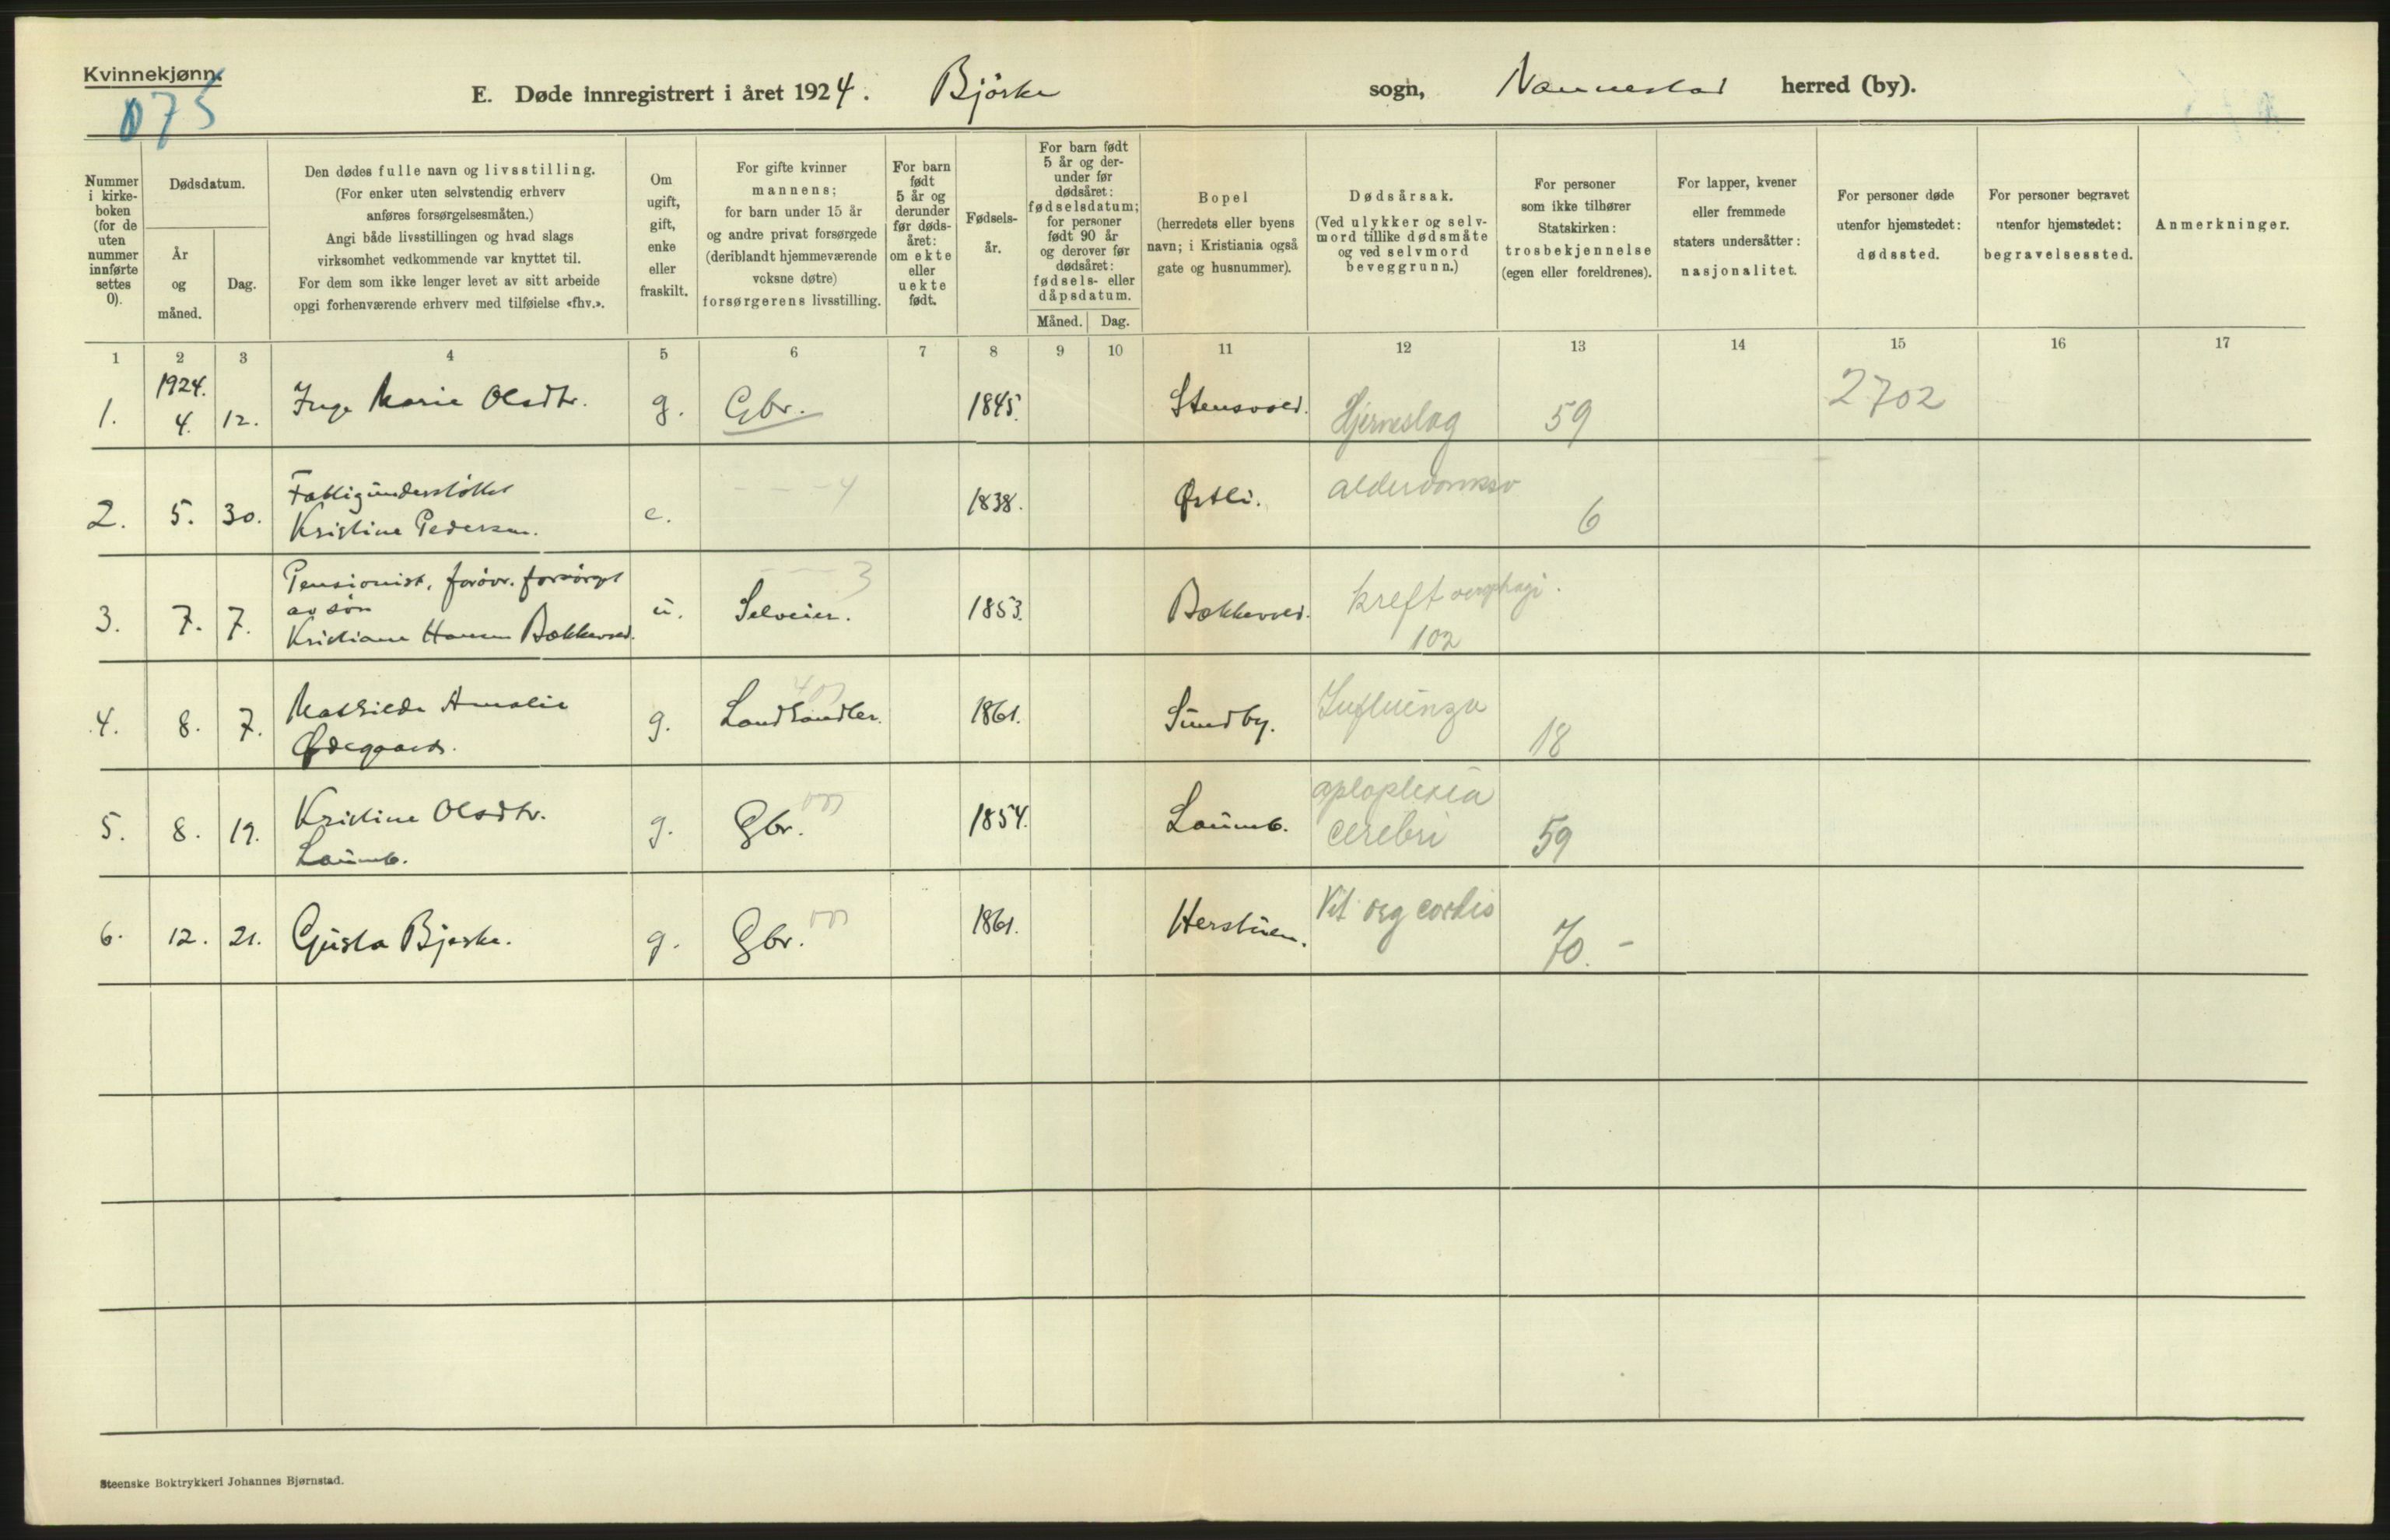 Kvinnekjønn.
075
E. Døde innregistrert i året 1924. Bjórke sogn, Nannestad herred (by).
Nummer i kirke- boken (for de uten nummer innførte settes 0).
Dødsdatum.
År og måned.
Dag.
Den dødes fulle navn og livsstilling.
(For enker uten selvstendig erhverv
anføres forsørgelsesmåten.)
Angi både livsstillingen og hvad slags
virksomhet vedkommende var knyttet til.
For dem som ikke lenger levet av sitt arbeide
opgi forhenværende erhverv med tilføielse «fhv.».
Om ugift, gift, enke eller fraskilt.
For gifte kvinner
mannens;
for barn under 15 år
og andre privat forsørgede
(deriblandt hjemmeværende
voksne døtre)
forsørgerens livsstilling.
For barn født 5 år og derunder før døds- året: om ekte eller uekte født.
Fødsels- år.
For barn født 5 år og der- under før dødsåret: fødselsdatum; for personer født 90 år og derover før dødsåret: fødsels- eller dåpsdatum.
Måned. Dag.
Bopel
(herredets eller byens
navn; i Kristiania også
gate og husnummer).
Dødsårsak.
(Ved ulykker og selv-
mord tillike dødsmåte
og ved selvmord
beveggrunn.)
For personer
som ikke tilhører
Statskirken:
trosbekjennelse
(egen eller foreldrenes).
For lapper, kvener
eller fremmede
staters undersåtter:
nasjonalitet.
For personer døde
utenfor hjemstedet:
dødssted.
For personer begravet
utenfor hjemstedet:
begravelsessted.
Anmerkninger.
1 2 3 4 5 6 7 8 9 10 11 12 13 14 15 16 17
1924.
1. 4. 12. Inge Marie Olsdtr. g. Gbr. 1845. Stensvold. Hjerneslag 59 2702
Fattigunderstöttet
2. 5. 30. Kristine Pedersen. e. 4 1838. Østli. alderdomssv 6
Pensionist, forövr. forsörget
av sön
3. 7. 7. Kristiane Hansen Bækkevold. u. 3 Selveier. 1853. Bækkevold. kreft
102
4. 8. 7. Mathilde Amalie g. Landhandler. 1861. Sundby. Influenza 18
Ødegaard.
5. 8. 19. Kristine Olsdtr. g. Gbr. 1854. Laumb. aploplexia
Laumb. cerebri 59
6. 12. 21. Gusta Bjerke. g. Gbr. 1861. Herstuen. Vit org cordis 70. -
Steenske Boktrykkeri Johannes Bjørnstad.